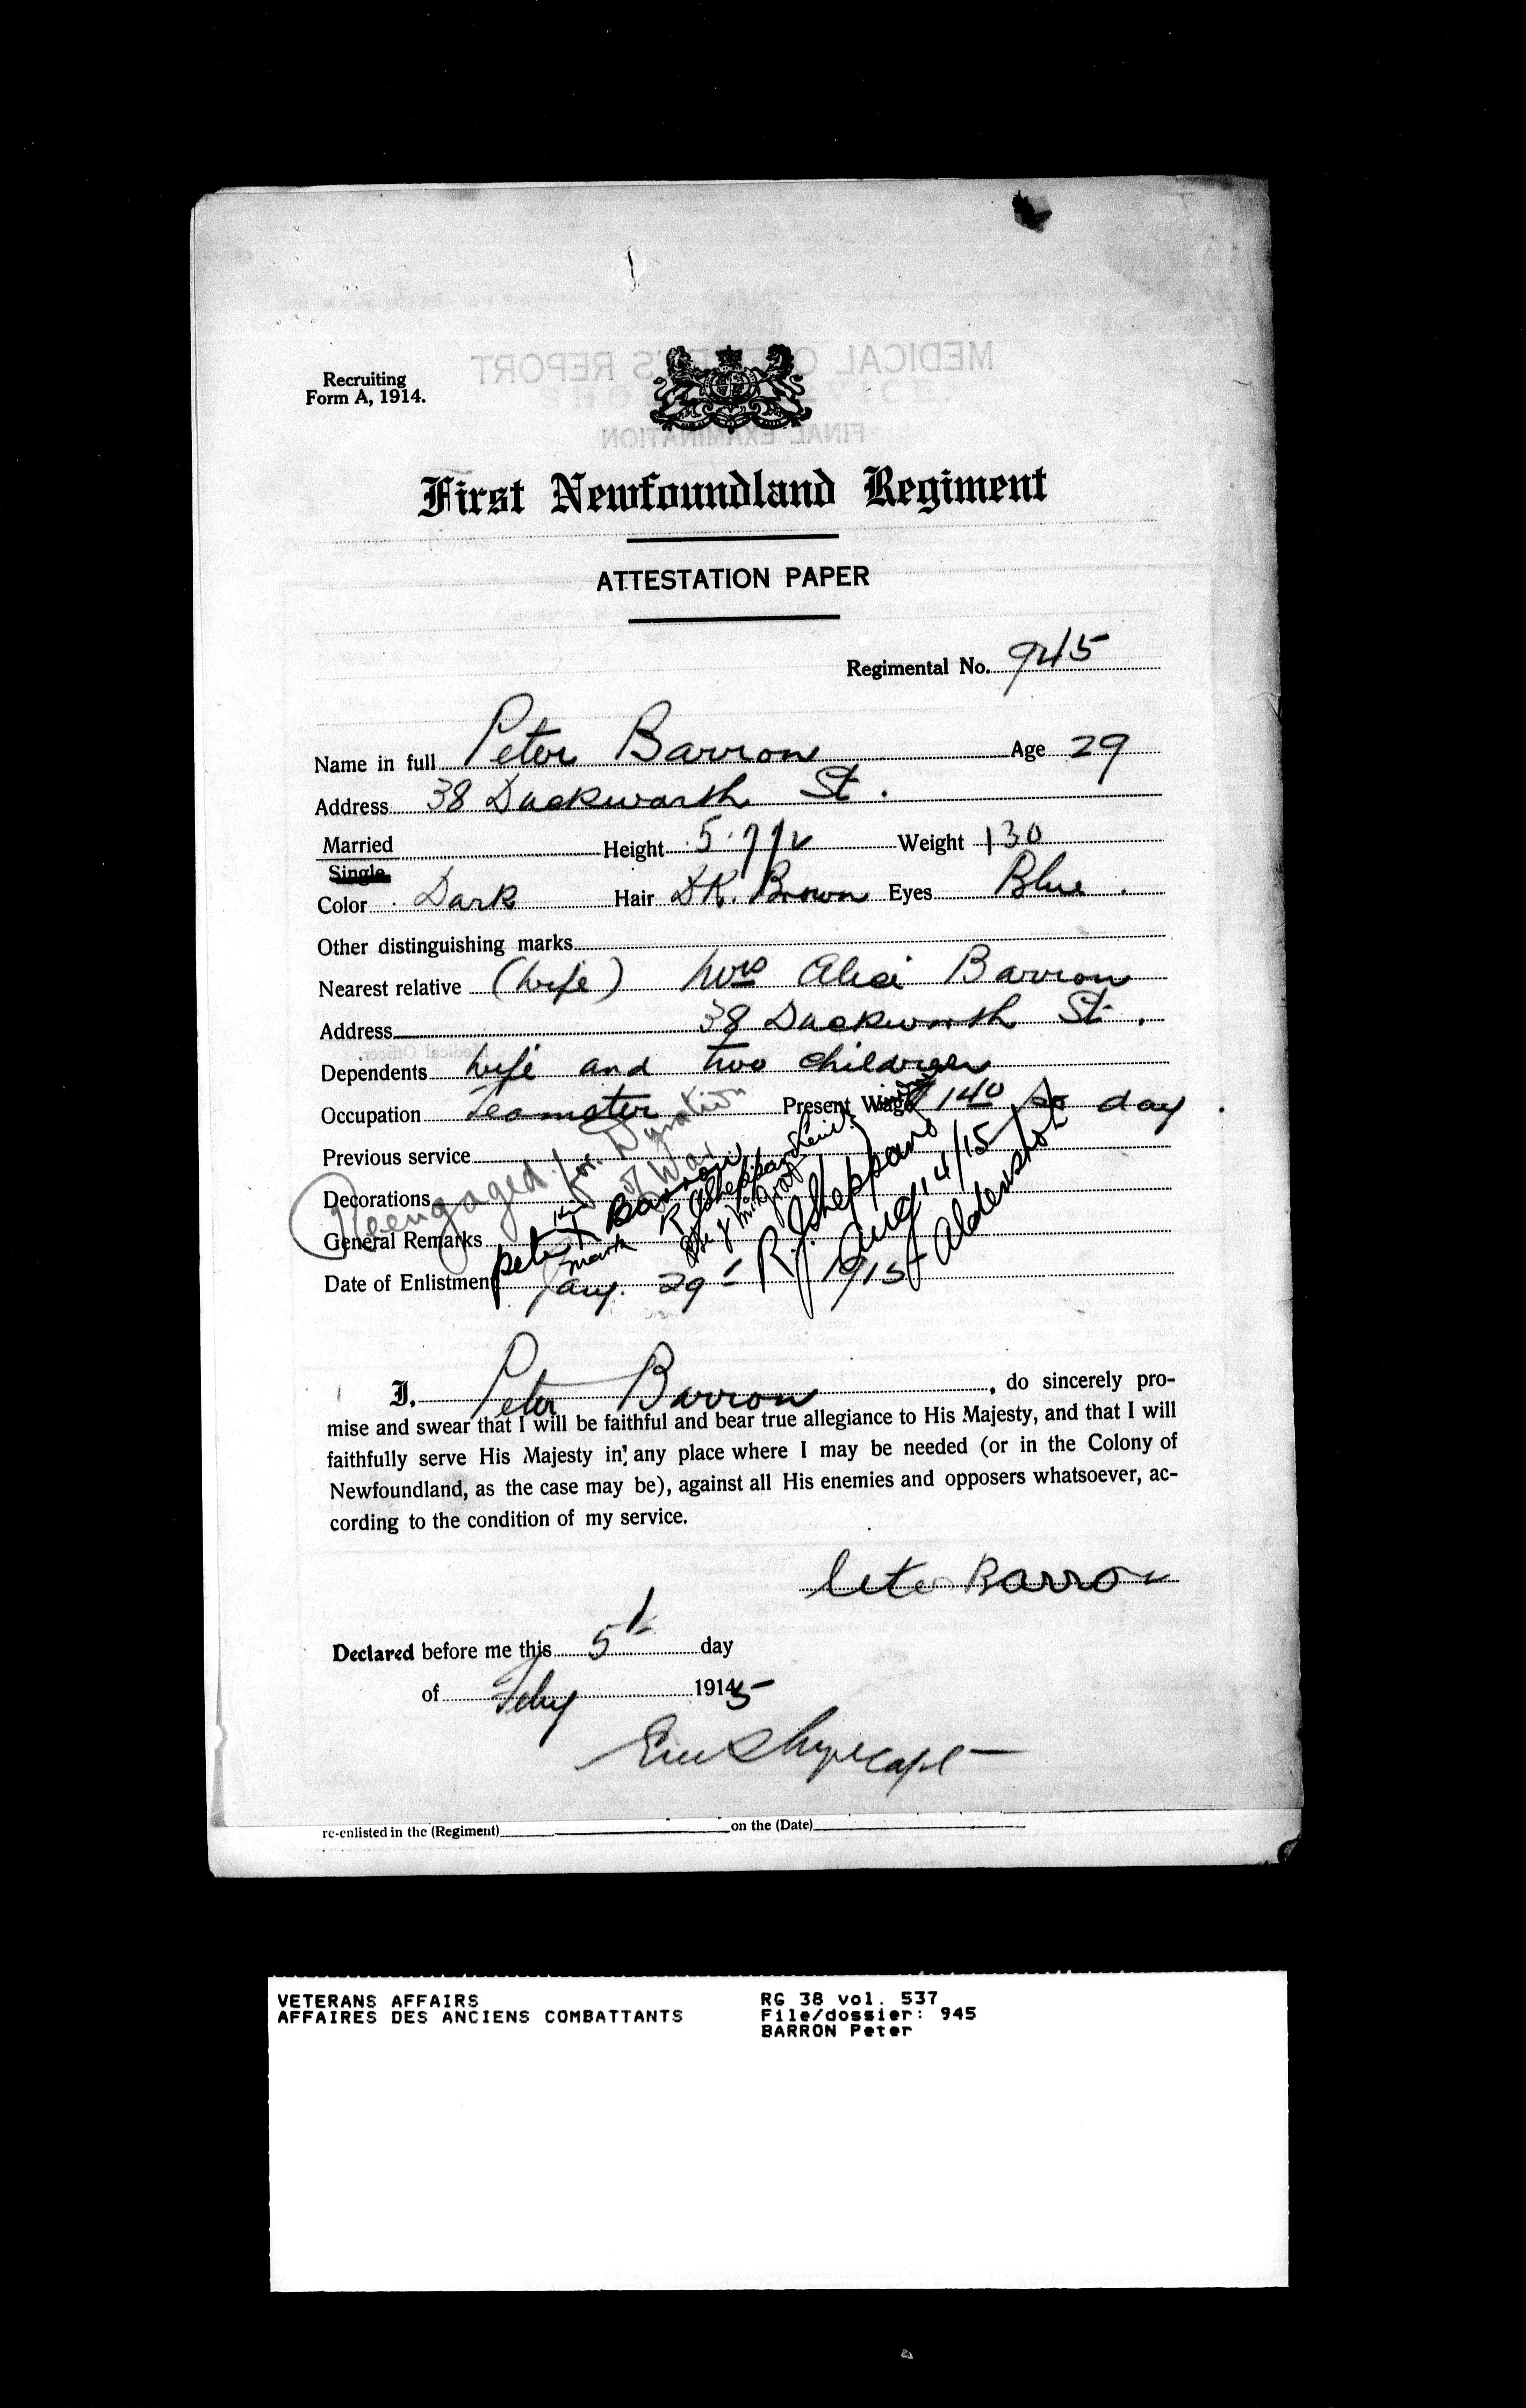 Recruiting
Form A, 1914.
MEDICAL OFFICER'S REPORT
FINAL EXAMINATION
First Newfoundland Regiment
ATTESTATION PAPER
Regimental No. 945
Name in full Peter Barron Age 29
Address 38 Duckworth St.
Married Height 5.7 1/2 Weight 130
Single
Color Dark Hair DK. Brown Eyes Blue.
Other distinguishing marks
Nearest relative (Wife) Mrs Alice Barron
Address 38 Duckworth St.
Dependents Wife and two children
Occupation Teamster Present Wage $1.40 day.
Previous service
Decorations
General Remarks
Date of Enlistment Jany. 29 1915
Reengaged for Duration
of War
Peter X Barron
his
mark
R J Sheppard Lieut
R. J. Sheppard
Aug 14/15
Aldershot
I, Peter Barron, do sincerely pro-
mise and swear that I will be faithful and bear true allegiance to His Majesty, and that I will
faithfully serve His Majesty in any place where I may be needed (or in the Colony of
Newfoundland, as the case may be), against all His enemies and opposers whatsoever, ac-
cording to the condition of my service.
Peter Barron
Declared before me this 5 day
of Feby 1915
Capt
re-enlisted in the (Regiment) on the (Date)
VETERANS AFFAIRS RG 38 vol. 537
AFFAIRES DES ANCIENS COMBATTANTS File/dossier: 945
BARRON Peter